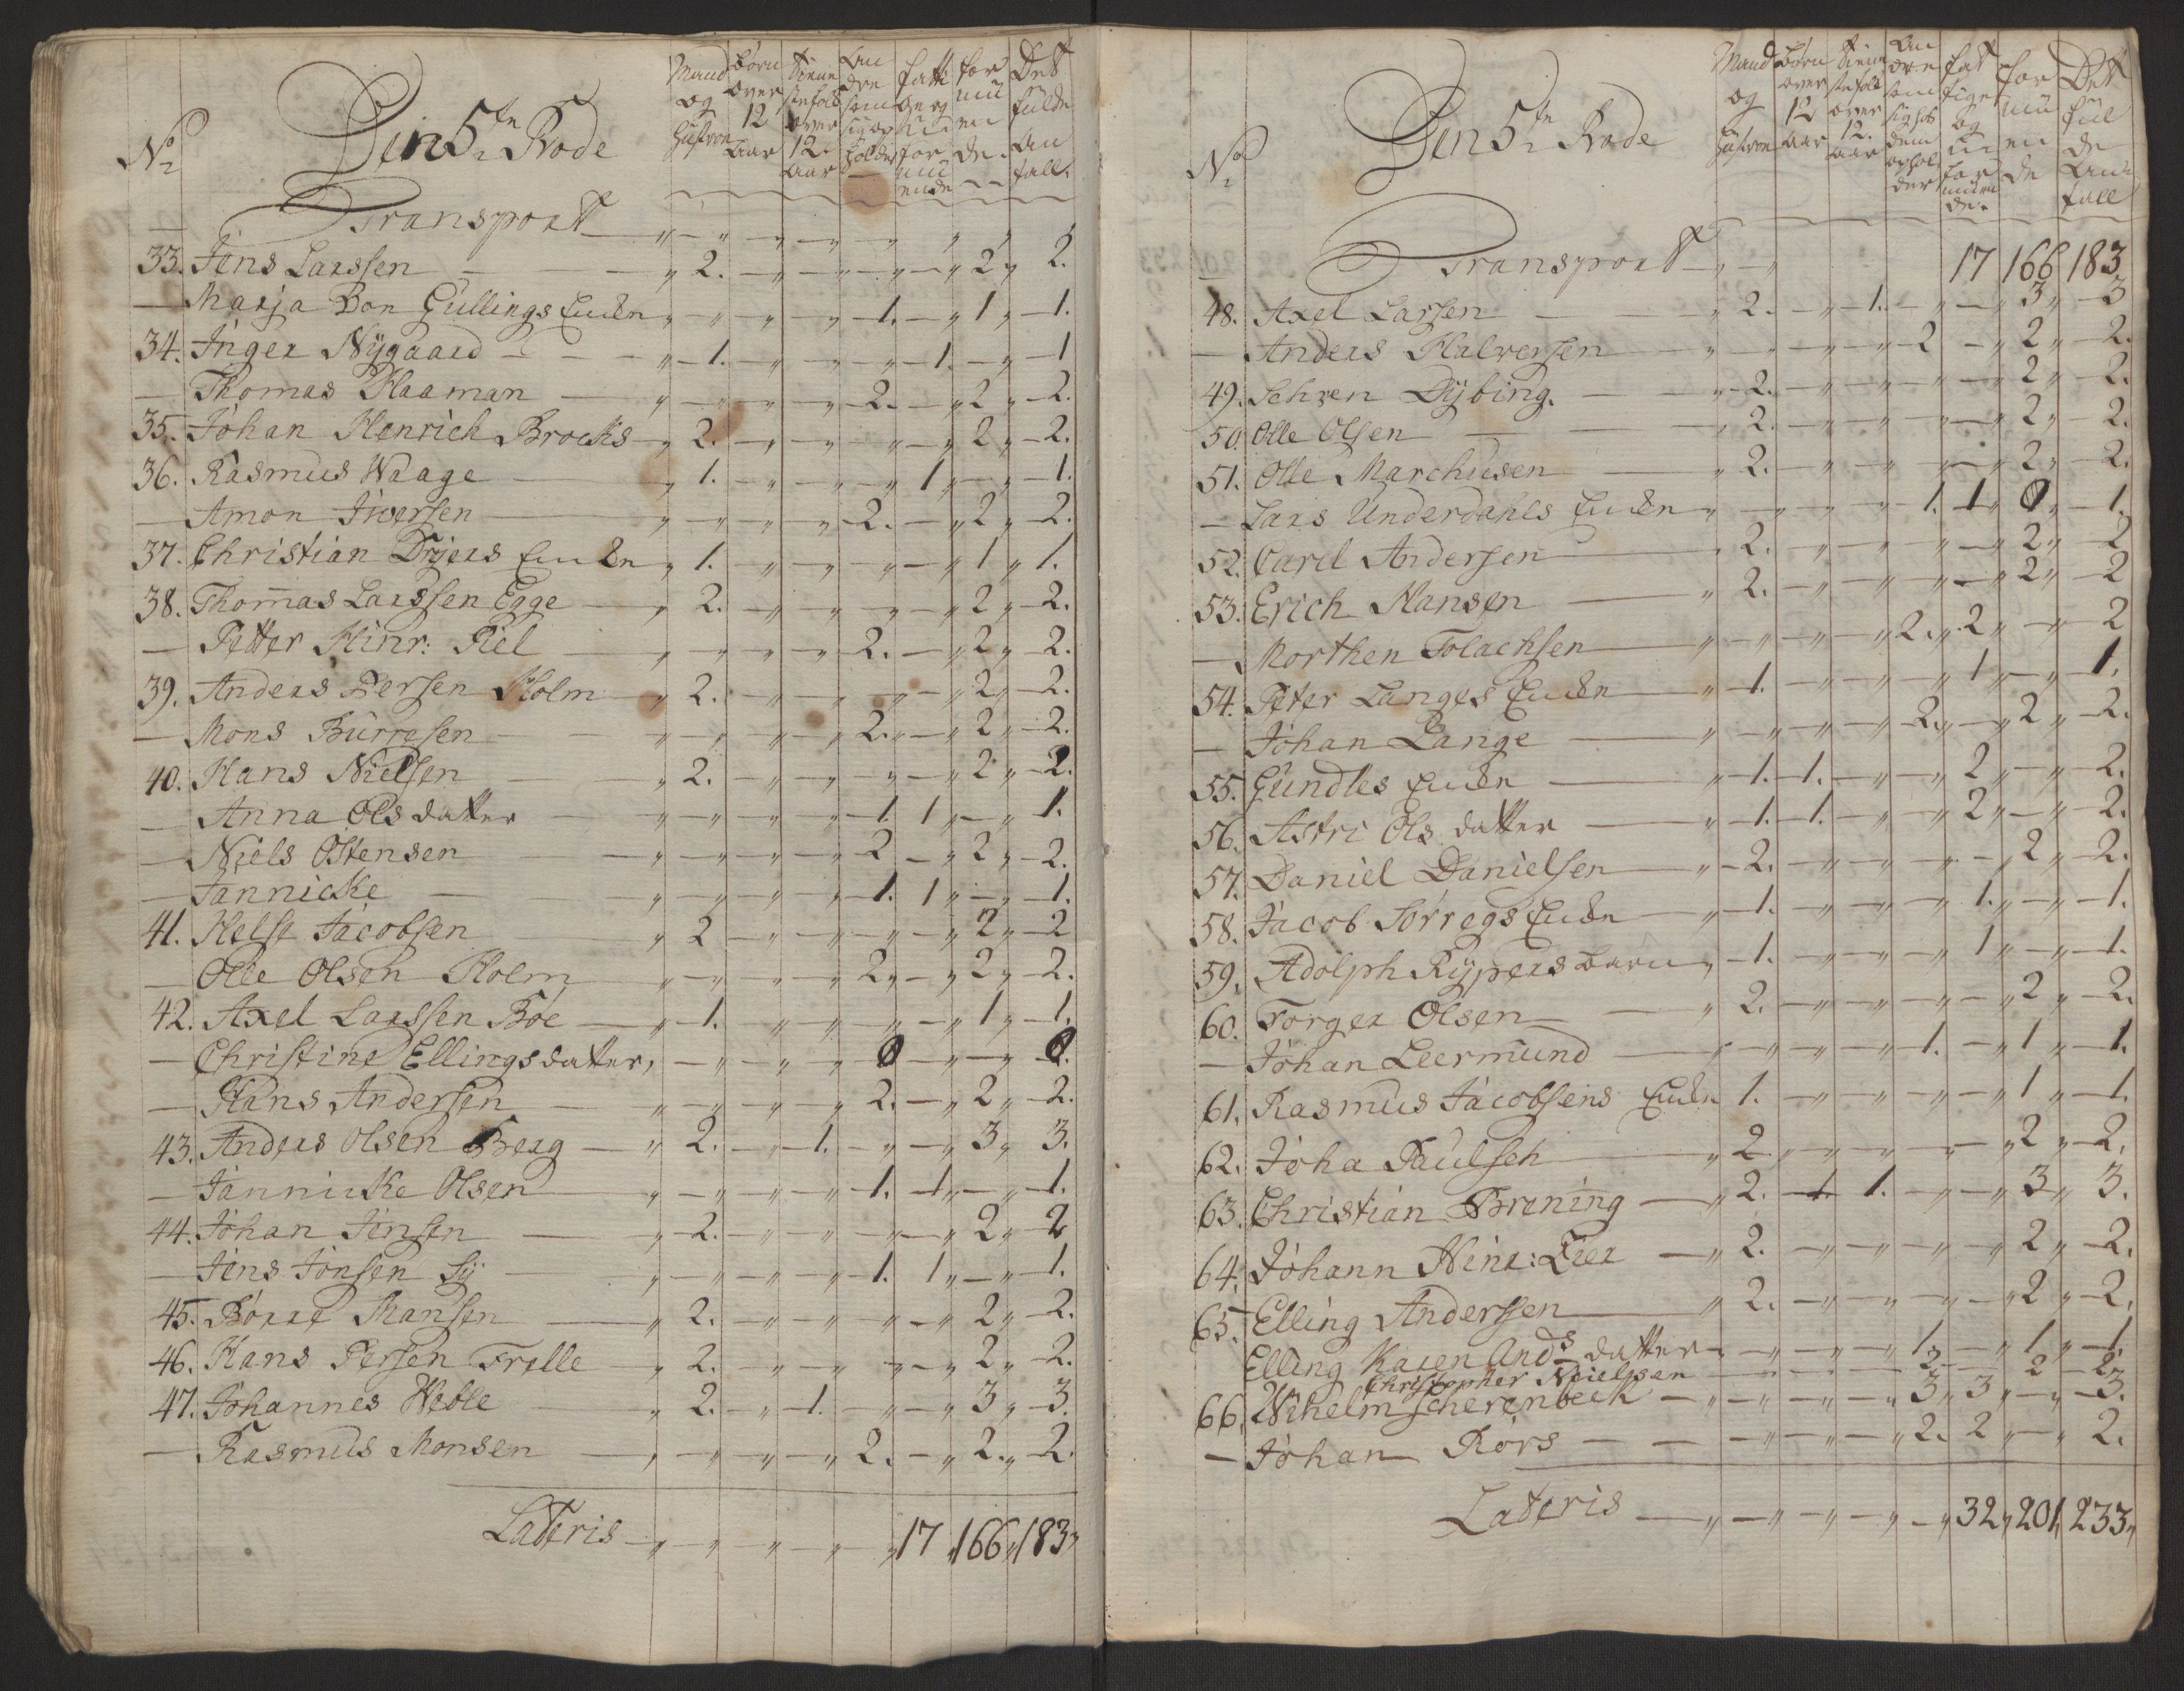 No
Den 5te Rode
Mand og Hustroe
Børn over 12 Aar
Tieneste folk over 12 Aar
Andre som sig op holder
fatti ge og Uformuende
formuende
Det fulde Antall.
Transport
33. Jens Larssen 2. 2 2.
Marja Von Gullings Enken 1. 1 1.
34. Inger Nÿgaard 1. 1. 1
Thomas Haaman 2. 2 2.
35. Johan Henrich Brocks 2. 2 2.
36. Rasmus Waage 1. 1 1.
Amon Iwersen 2. 2 2.
37. Christian Drÿers Enken 1. 1 1.
38. Thomas Larssen Egge 2. 2 2.
Petter Hinr: Piel 2. 2 2.
39. Anders Persen Holm 2. 2 2.
Mons Burresen 2. 2 2.
40. Hans Nielsen 2. 2 2.
Anna Ols datter 1. 1 1.
Niels Ostensen 2 2 2.
Jannicke 1. 1 1.
41. Helse Jacobsen 2 2 2
Olle Olsen Holm 2 2 2.
42. Axel Larssen Böe 1. 1 1.
Christine Ellingsdatter 0 0.
Hans Andersen 2. 2 2.
43. Anders Olsen Berg 2. 1. 3 3.
Jannicke Olsen 1. 1 1.
44. Johan Jensen 2. 2 2
Jens Jonsen Sÿ 1. 1 1.
45. Börre Mansen 2. 2 2.
46. Hans Persen Frille 2. 2 2.
47. Johannes Weble 2. 1. 3 3.
Rasmus Monsen 2. 2. 2.
Lateris 17 166 183
No
Den 5te Rode
Mand og Hustroe
Børn over 12 Aar
Tieneste folk over 12. Aar
Andre som sig hos dem opholder
fattige og Uformuende
formuende
Det fulde Antall
Transport 17 166 183
48. Axel Larsen 2. 1. 3 3
Anders Halversen 2 2 2.
49. Schven Dÿbing. 2. 2 2.
50. Olle Olsen 2. 2 2.
51. Olle Marchusen 2. 2 2.
Lars Underdahls Enken 1. 1 0 1.
52. Carel Andersen 2. 2 2
53. Erich Hansen 2. 2 2
Morthen Folachsen 2. 2 2
54. Peter Langes Enken 1. 1 1.
Johan Lange 2. 2 2.
55. Gundles Enken 1. 1. 2 2.
56. Astri Ols datter 1. 1. 2 2.
57. Daniel Danielsen 2. 2 2.
58. Jacob Sörregs Enken 1. 1. 1.
59. Adolph Rÿpers Barn 1. 1 1.
60. Torger Olsen 2. 2 2.
Johan Leermund 1. 1 1.
61. Rasmus Jacobsens Enken 1. 1 1.
62. Joha Paulsen 2 2 2.
63. Christian Brening 2. 1 1. 3 3.
64. Johann Hinr: Eier 2. 2 2.
65. Elling Anderssen 2. 2 2.
Elling Karen Ands datter 1 1 1
Christopher Neielsen 2 2 2
66. Wihelm Scherenbeck 3 3 3.
Johan Rörs 2. 2 2.
Lateris 32 201 233